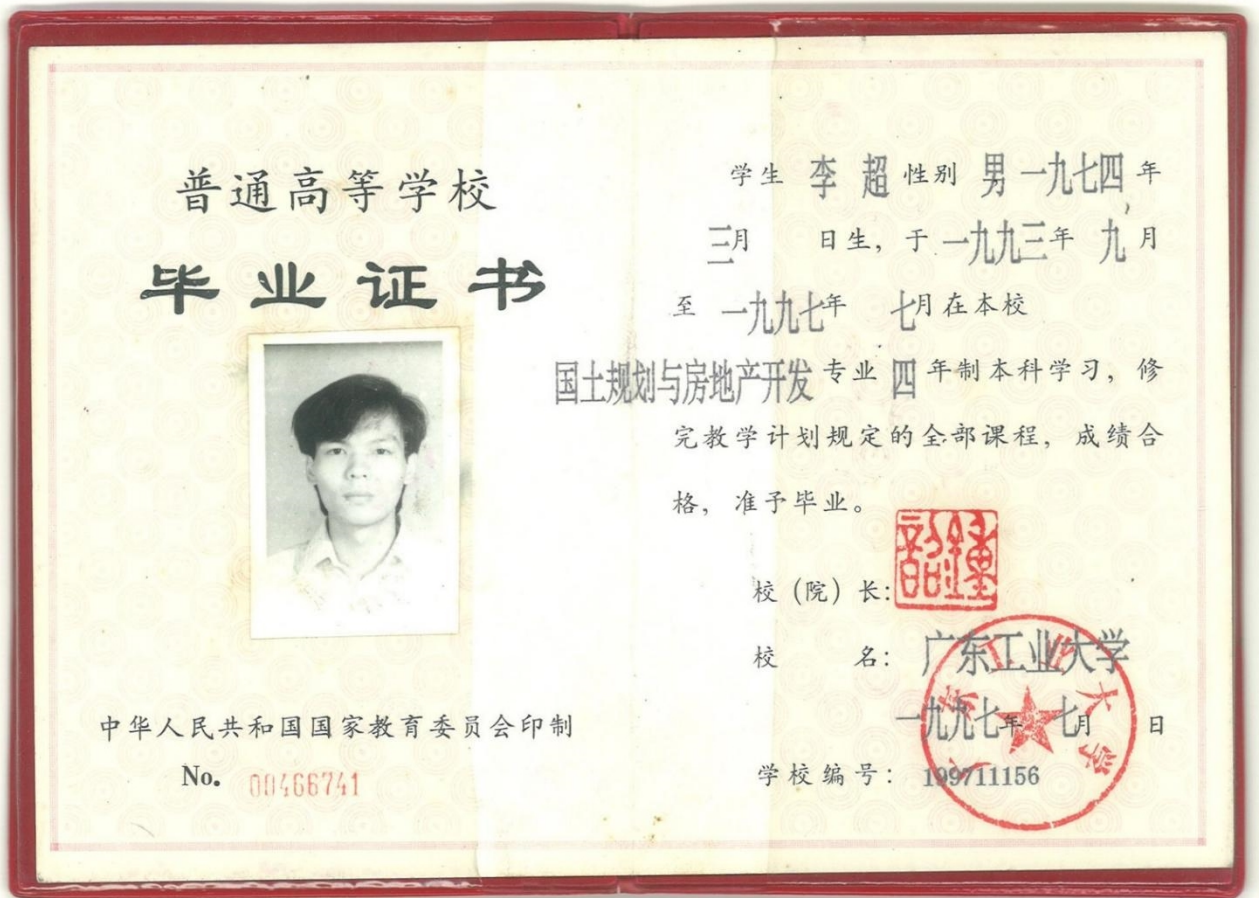 普通高等学校
毕业证书
中华人民共和国国家教育委员会印制
No. 00466741
学生 李超 性别 男 一九七四年
三月 日生，于一九九三年 九月
至 一九九七年 七月在本校
国土规划与房地产开发 专业 四 年制本科学习，修
完教学计划规定的全部课程，成绩合
格，准予毕业。
校（院）长：
校 名： 广东工业大学
一九九七年 七月 日
学校编号： 199711156